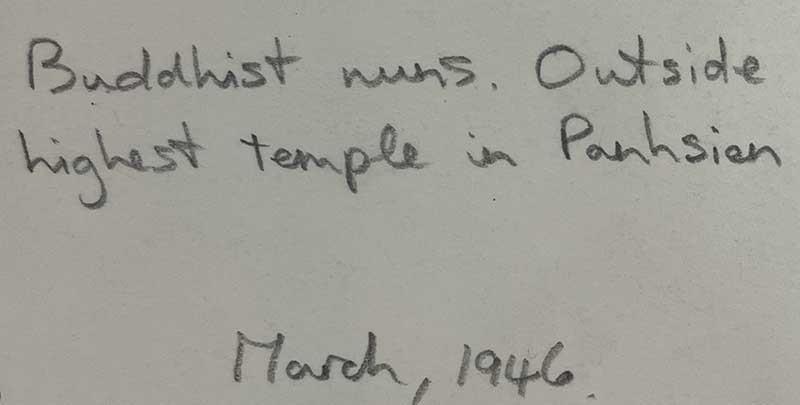 Buddhist nuns. Outside
highest temple in Panhsien
March, 1946.